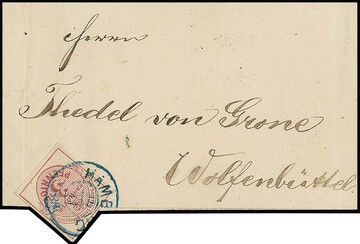 Herrn
Thedel von Grone
Wolfenbüttel.
HAMB